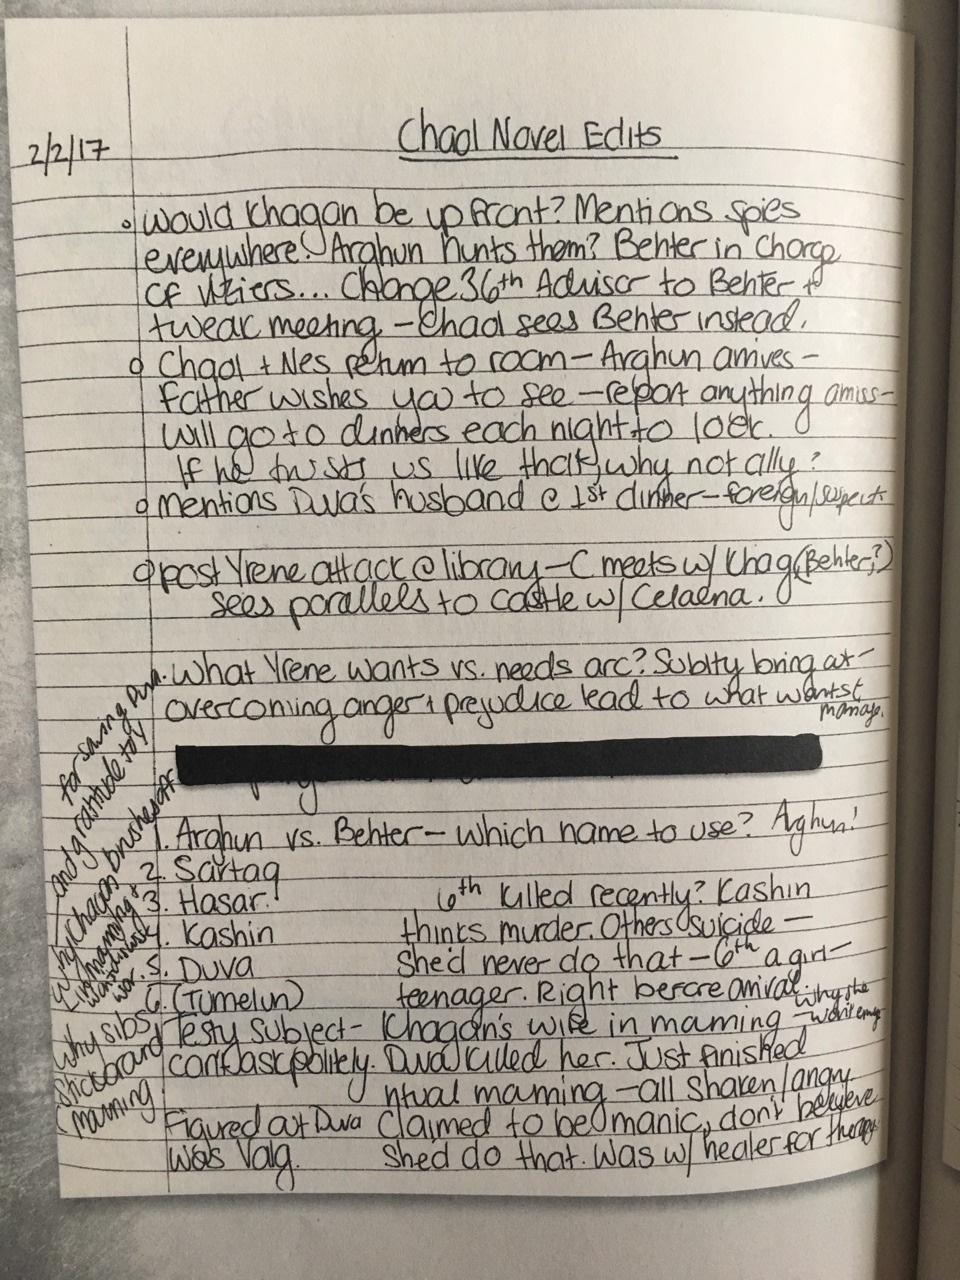 2/2/17
Chaol Novel Edits
would Khagan be up front? Mentions spies
everywhere! Arghun hunts them? Behter in charge
of Viziers... Change 36th Advisor to Behter +
tweak meeting - Chaol sees Behter instead.
Chaol + Nes return to room - Arghun arrives -
Father wishes you to see - report anything amiss -
will go to dinners each night to look.
If he trusts us like that, why not ally?
mentions Duva's husband @ 1st dinner - foreign/suspect
post Yrene attack @ library - C meets w/ Khag (Behter?)
sees parallels to castle w/ Celaena.
What Yrene wants vs. needs arc? Subtly bring out -
overcoming anger + prejudice lead to what wants
1. Arghun vs. Behter - which name to use? Arghun!
2. Sartaq
3. Hasar!
4. Kashin
5. Duva
6. (Tumelun)
6th killed recently? Kashin
thinks murder. Others suicide -
She'd never do that - 6th a girl -
teenager. Right before arrival.
Khagan's wife in mourning - why she
won't
Duva killed her. Just finished
ritual mourning - all shaken/angry
Claimed to be manic, don't believe
She'd do that. Was w/ healer for therapy
Testy subject -
can't ask politely.
Figured out Duva
was Valg.
for saving Duva
and gratitude to Y
why Khagan brushes off
in mourning +
war.
why sibs
stick around
mourning